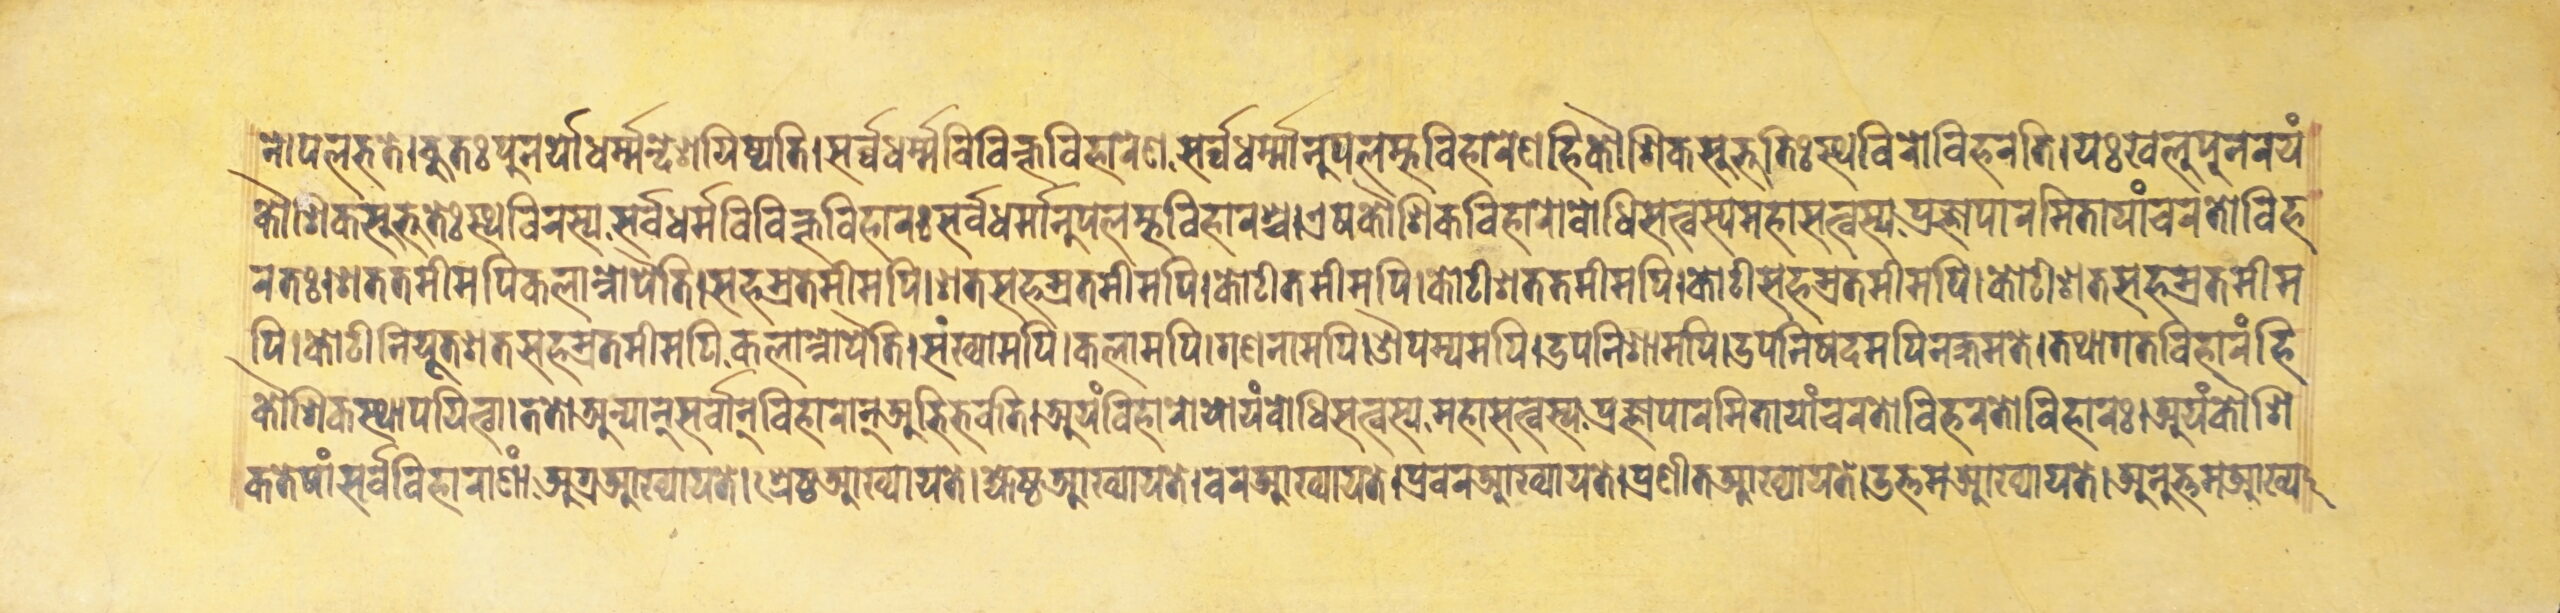 नोपलभते।कुतःपुनर्योधर्म्मन्देशयिष्यति।सर्व्वधर्म्मविविक्तविहारेण सर्व्वधर्म्मानुपलम्भविहारेणहिकौशिकसुभूतिःस्थविरोविहरति।यःखलुपुनरयं
कौशिकसुभूतेःस्थविरस्य सर्वधर्मविविक्तविहारःसर्वधर्मानुपलम्भविहारश्च।एषकौशिकविहारोबोधिसत्त्वस्यमहासत्त्वस्य प्रज्ञापारमितायांचरतोविह
रतः।शततमीमपिकलान्नोपैति।सहस्रतमीमपि।शतसहस्रतमीमपि।कोटीतमीमपि।कोटीशततमीमपि।कोटीसहस्रतमीमपि।कोटीशतसहस्रतमीम
पि।कोटीनियूतशतसहस्रतमीमपि कलान्नोपैति।संख्यामपि।कलामपि।गणनामपि।औपम्यमपि।उपनिशामपि।उपनिषदमपिनक्षमते।तथागतविहारंहि
कौशिकस्थापयित्वा।ततोअन्यान्सर्वान्विहारान्अभिभवति।अयंविहारोयोयंबोधिसत्त्वस्य महासत्त्वस्य प्रज्ञापारमितायांचरतोविहरतोविहारः।अयंकौशि
कतेषांसर्वविहाराणां अग्रआख्यायते।श्रेष्ठआख्यायते।ज्येष्ठआख्यायते।वरआख्यायते।प्रवरआख्यायते।प्रणीतआख्यायते।उत्तमआख्यायते।अनुत्तमआख्या